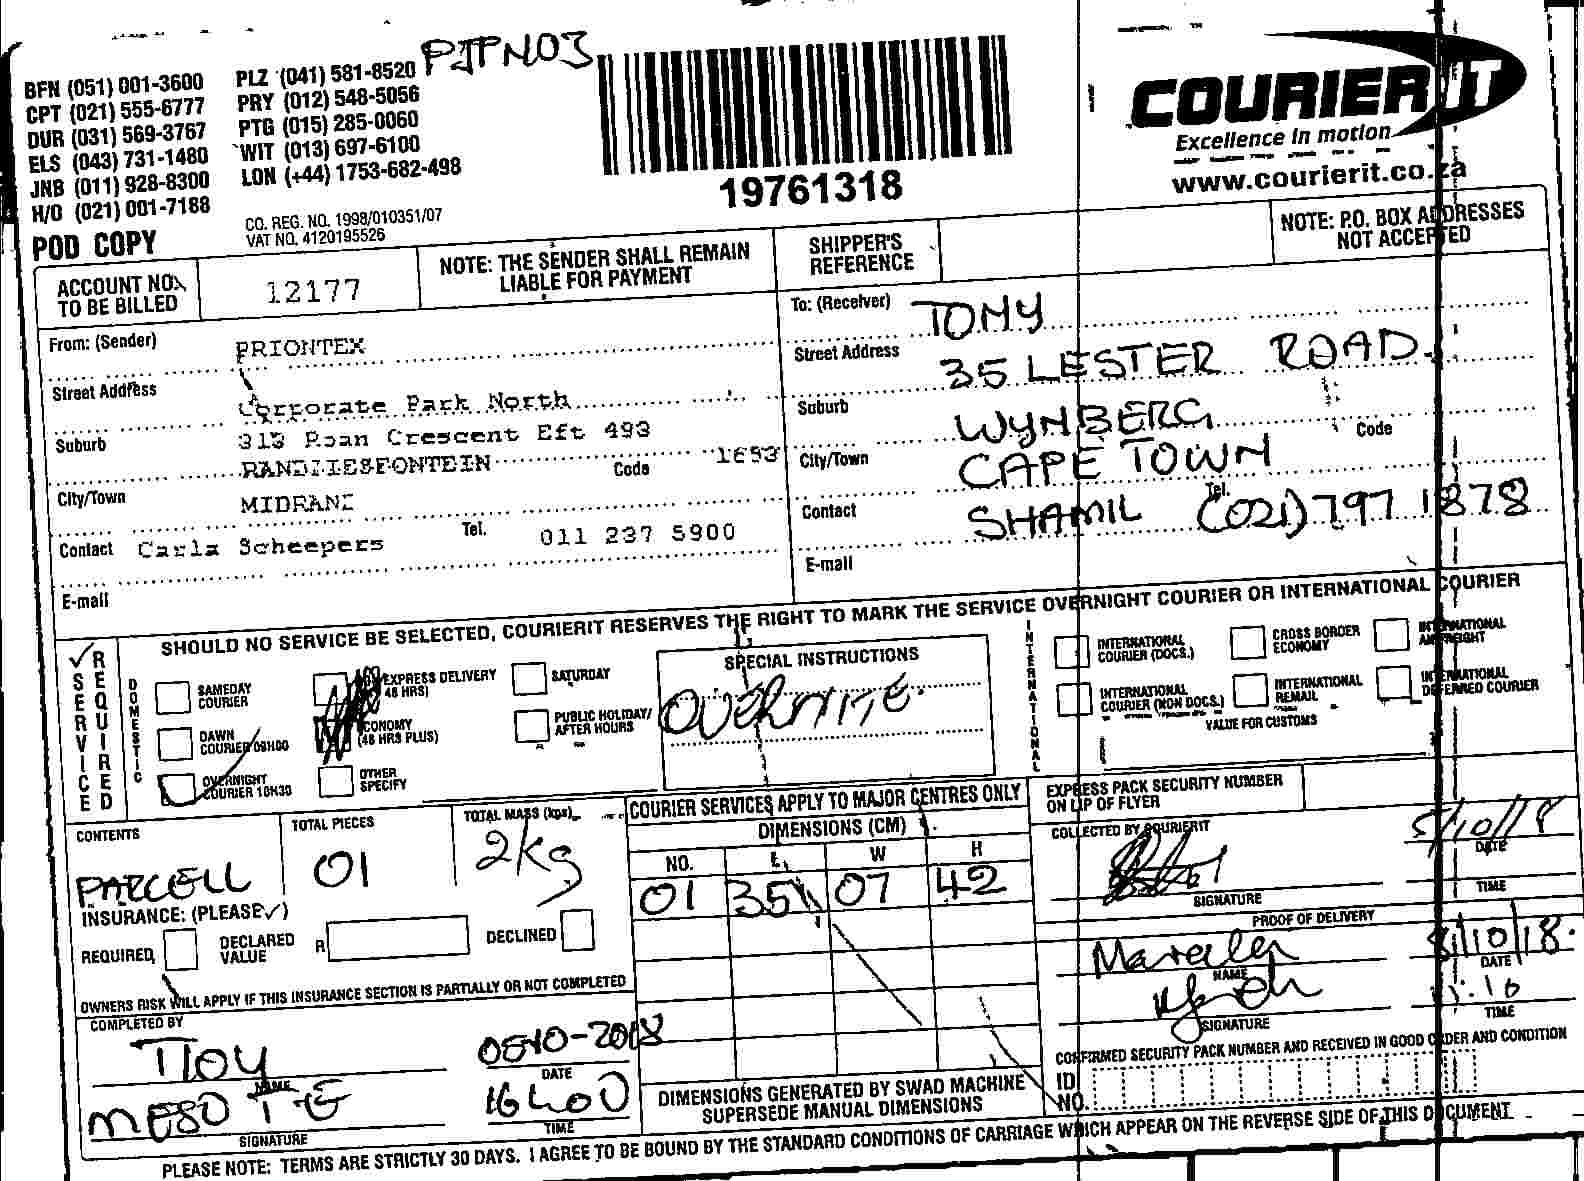 PJPN03
BFN (051) 001-3600
CPT (021) 555-6777
DUR (031) 569-3767
ELS (043) 731-1480
JNB (011) 928-8300
H/O (021) 001-7188
PLZ (041) 581-8520
PRY (012) 548-5056
PTG (015) 285-0060
WIT (013) 697-6100
LON (+44) 1753-682-498
CO. REG. NO. 1998/010351/07
VAT NO. 4120195526
POD COPY
19761318
COURIER IT
Excellence in motion
www.courierit.co.za
ACCOUNT NO.
TO BE BILLED
12177
NOTE: THE SENDER SHALL REMAIN
LIABLE FOR PAYMENT
SHIPPER'S
REFERENCE
NOTE: P.O. BOX ADDRESSES
NOT ACCEPTED
From: (Sender) PRIONTEX
Street Address
Corporate Park North
Suburb 313 Roan Crescent Eft 493
Code 1693
City/Town
Contact Carla Scheepers Tel. 011 237 5900
E-mail
To: (Receiver) TONY
Street Address 35 LESTER ROAD
Suburb WYNBERG
City/Town CAPE TOWN Code
Contact SHAMIL Tel. (021) 797 1878
E-mail
SHOULD NO SERVICE BE SELECTED, COURIERIT RESERVES THE RIGHT TO MARK THE SERVICE OVERNIGHT COURIER OR INTERNATIONAL COURIER
SERVICE REQUIRED
DOMESTIC
SAMEDAY COURIER
DAWN COURIER 09H00
OVERNIGHT COURIER 10H30
EXPRESS DELIVERY
48 HRS)
ECONOMY
(48 HRS PLUS)
OTHER SPECIFY
SATURDAY
PUBLIC HOLIDAY/
AFTER HOURS
SPECIAL INSTRUCTIONS
OVERNITE.
INTERNATIONAL
INTERNATIONAL COURIER (DOCS.)
INTERNATIONAL COURIER (NON DOCS.)
CROSS BORDER ECONOMY
INTERNATIONAL REMAIL
INTERNATIONAL AIRFREIGHT
INTERNATIONAL DEFERRED COURIER
VALUE FOR CUSTOMS
CONTENTS
PARCELL
TOTAL PIECES
01
TOTAL MASS (kgs)
2kg
INSURANCE: (PLEASE ✓)
REQUIRED
DECLARED VALUE R
DECLINED
OWNERS RISK WILL APPLY IF THIS INSURANCE SECTION IS PARTIALLY OR NOT COMPLETED
COURIER SERVICES APPLY TO MAJOR CENTRES ONLY
DIMENSIONS (CM)
NO. L W H
01 35 07 42
DIMENSIONS GENERATED BY SWAD MACHINE
SUPERSEDE MANUAL DIMENSIONS
EXPRESS PACK SECURITY NUMBER
ON LIP OF FLYER
COLLECTED BY COURIERIT
5/10/18
DATE
SIGNATURE
TIME
PROOF OF DELIVERY
8/10/18.
NAME
DATE
SIGNATURE
TIME
CONFIRMED SECURITY PACK NUMBER AND RECEIVED IN GOOD ORDER AND CONDITION
ID
NO.
COMPLETED BY
NAME
DATE
16h00
SIGNATURE
TIME
PLEASE NOTE: TERMS ARE STRICTLY 30 DAYS. I AGREE TO BE BOUND BY THE STANDARD CONDITIONS OF CARRIAGE WHICH APPEAR ON THE REVERSE SIDE OF THIS DOCUMENT